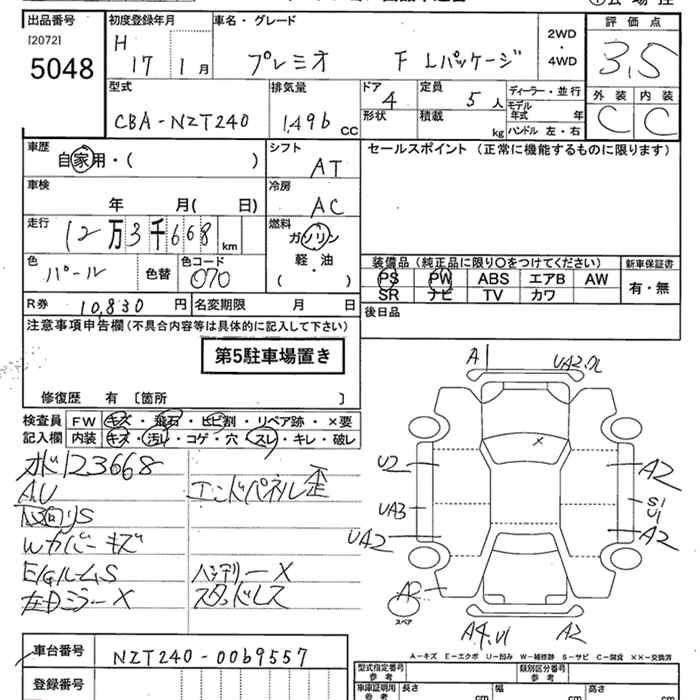 出品番号
[2072]
5048
初度登録年月
H 17 1 月
車名・グレード
プレミオ F Lパッケージ
2WD
・
4WD
評価点
3.5
外装 内装
C C
型式
CBA-NZT240
排気量
1496 cc
ドア
4
形状
定員
5 人
積載
kg
ディーラー・並行
モデル
年式 年
ハンドル 左・右
車歴
自家用・( )
シフト
AT
車検
年 月( 日)
冷房
AC
走行
12万3千668 km
燃料
ガソリン
軽・油
( )
色
パール
色替
色コード
070
R券 10,830 円
名変期限 月 日
セールスポイント(正常に機能するものに限ります)
装備品(純正品に限り〇をつけてください)
PS PW ABS エアB AW
SR ナビ TV カワ
新車保証書
有・無
後日品
注意事項申告欄(不具合内容等は具体的に記入して下さい)
第5駐車場置き
修復歴 有 〔箇所 〕
検査員
記入欄
FW キズ・飛石・ヒビ割・リペア跡・×要
内装 キズ・汚レ・コゲ・穴・スレ・キレ・破レ
メーター123668
AU
エンドパネル歪
Wカバーキズ
E/GルームS
バッテリーX
左DミラーX
スタッドレス
A1
UA2
U2
UA3
UA2
A2
S1
U1
A2
A2
スペア
A4,U1
A2
A-キズ E-エクボ U-凹ミ W-補修跡 S-サビ C-腐食 ××-交換済
車台番号
NZT240-0069557
登録番号
型式指定番号
参考
類別区分番号
参考
車庫証明用
参考
長さ cm
幅 cm
高さ cm